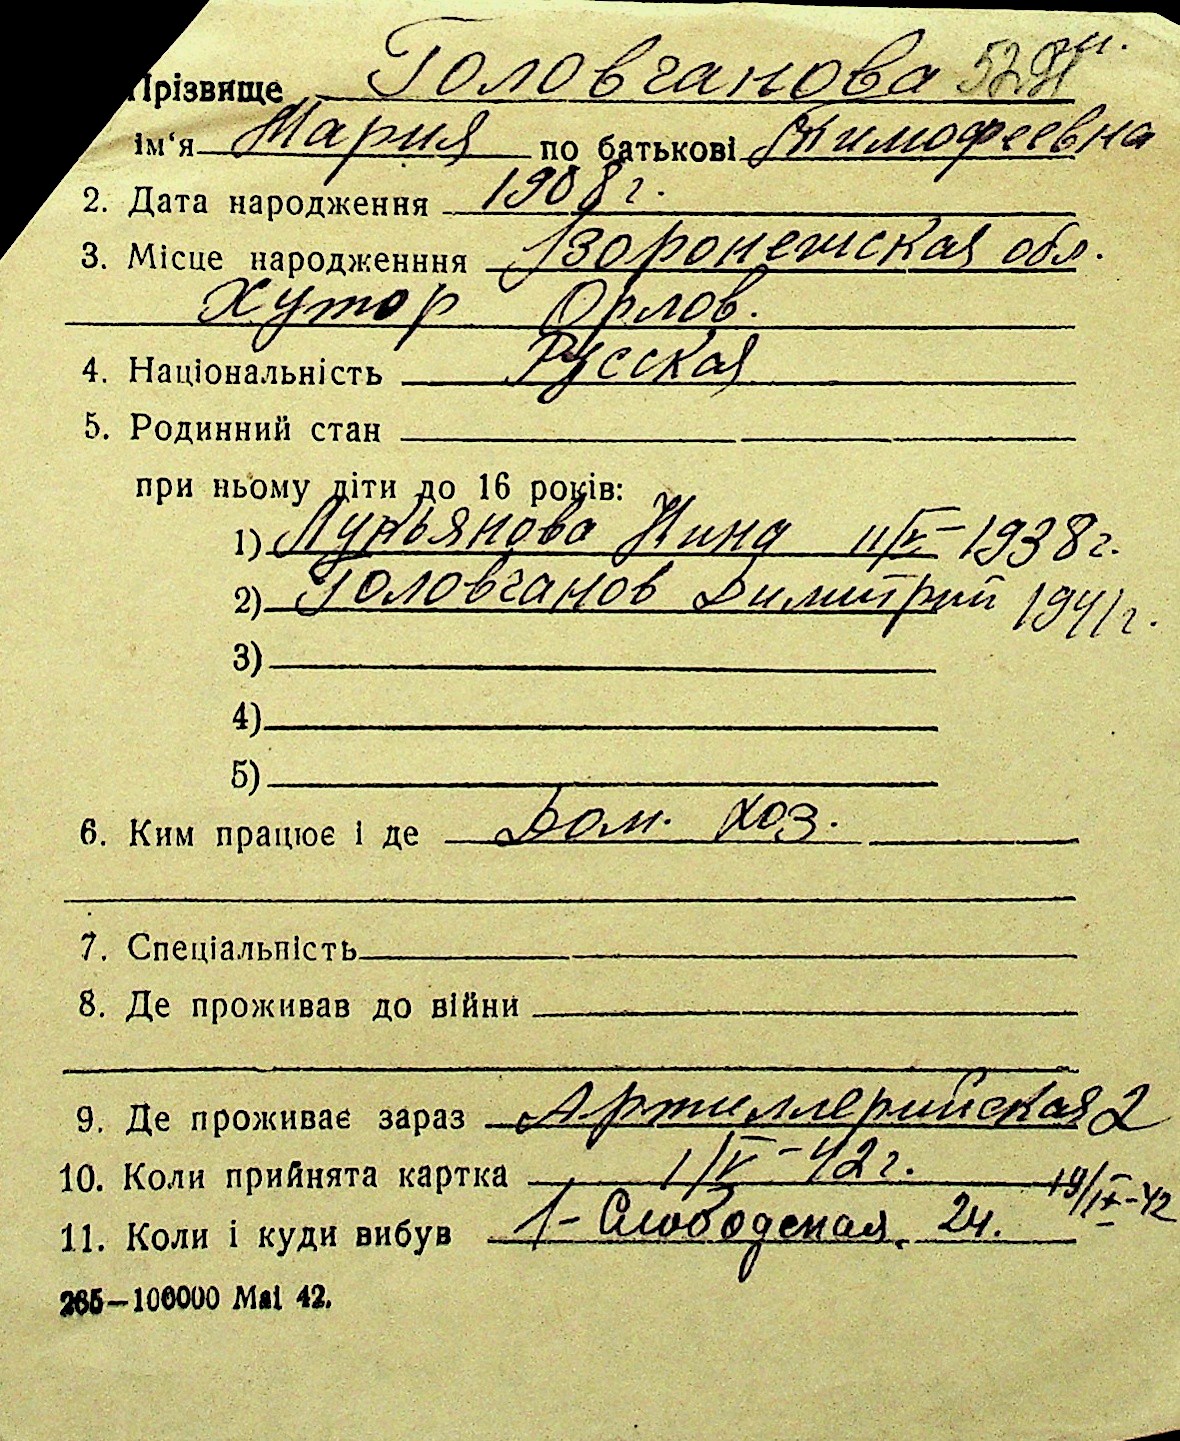 Прізвище Головчанова
ім‘я Мария по батькові Тимофеевна
2. Дата народження 1908 г.
3. Місце народженння Воронежская обл.
Хутор Орлов.
4. Національність Русская
5. Родинний стан
при ньому діти до 16 років:
1) Лукьянова Нина 11/V-1938 г.
2) Головчанов Димитрий 1941 г.
3)
4)
5)
6. Ким працює і де Дом. хоз.
7. Спеціальність
8. Де проживав до війни
9. Де проживає зараз Артиллерийская 2
10. Коли прийнята картка 1/V-42 г. 19/IX-42
11. Коли і куди вибув 1-Слободская, 24.
265—100000 Маі 42.